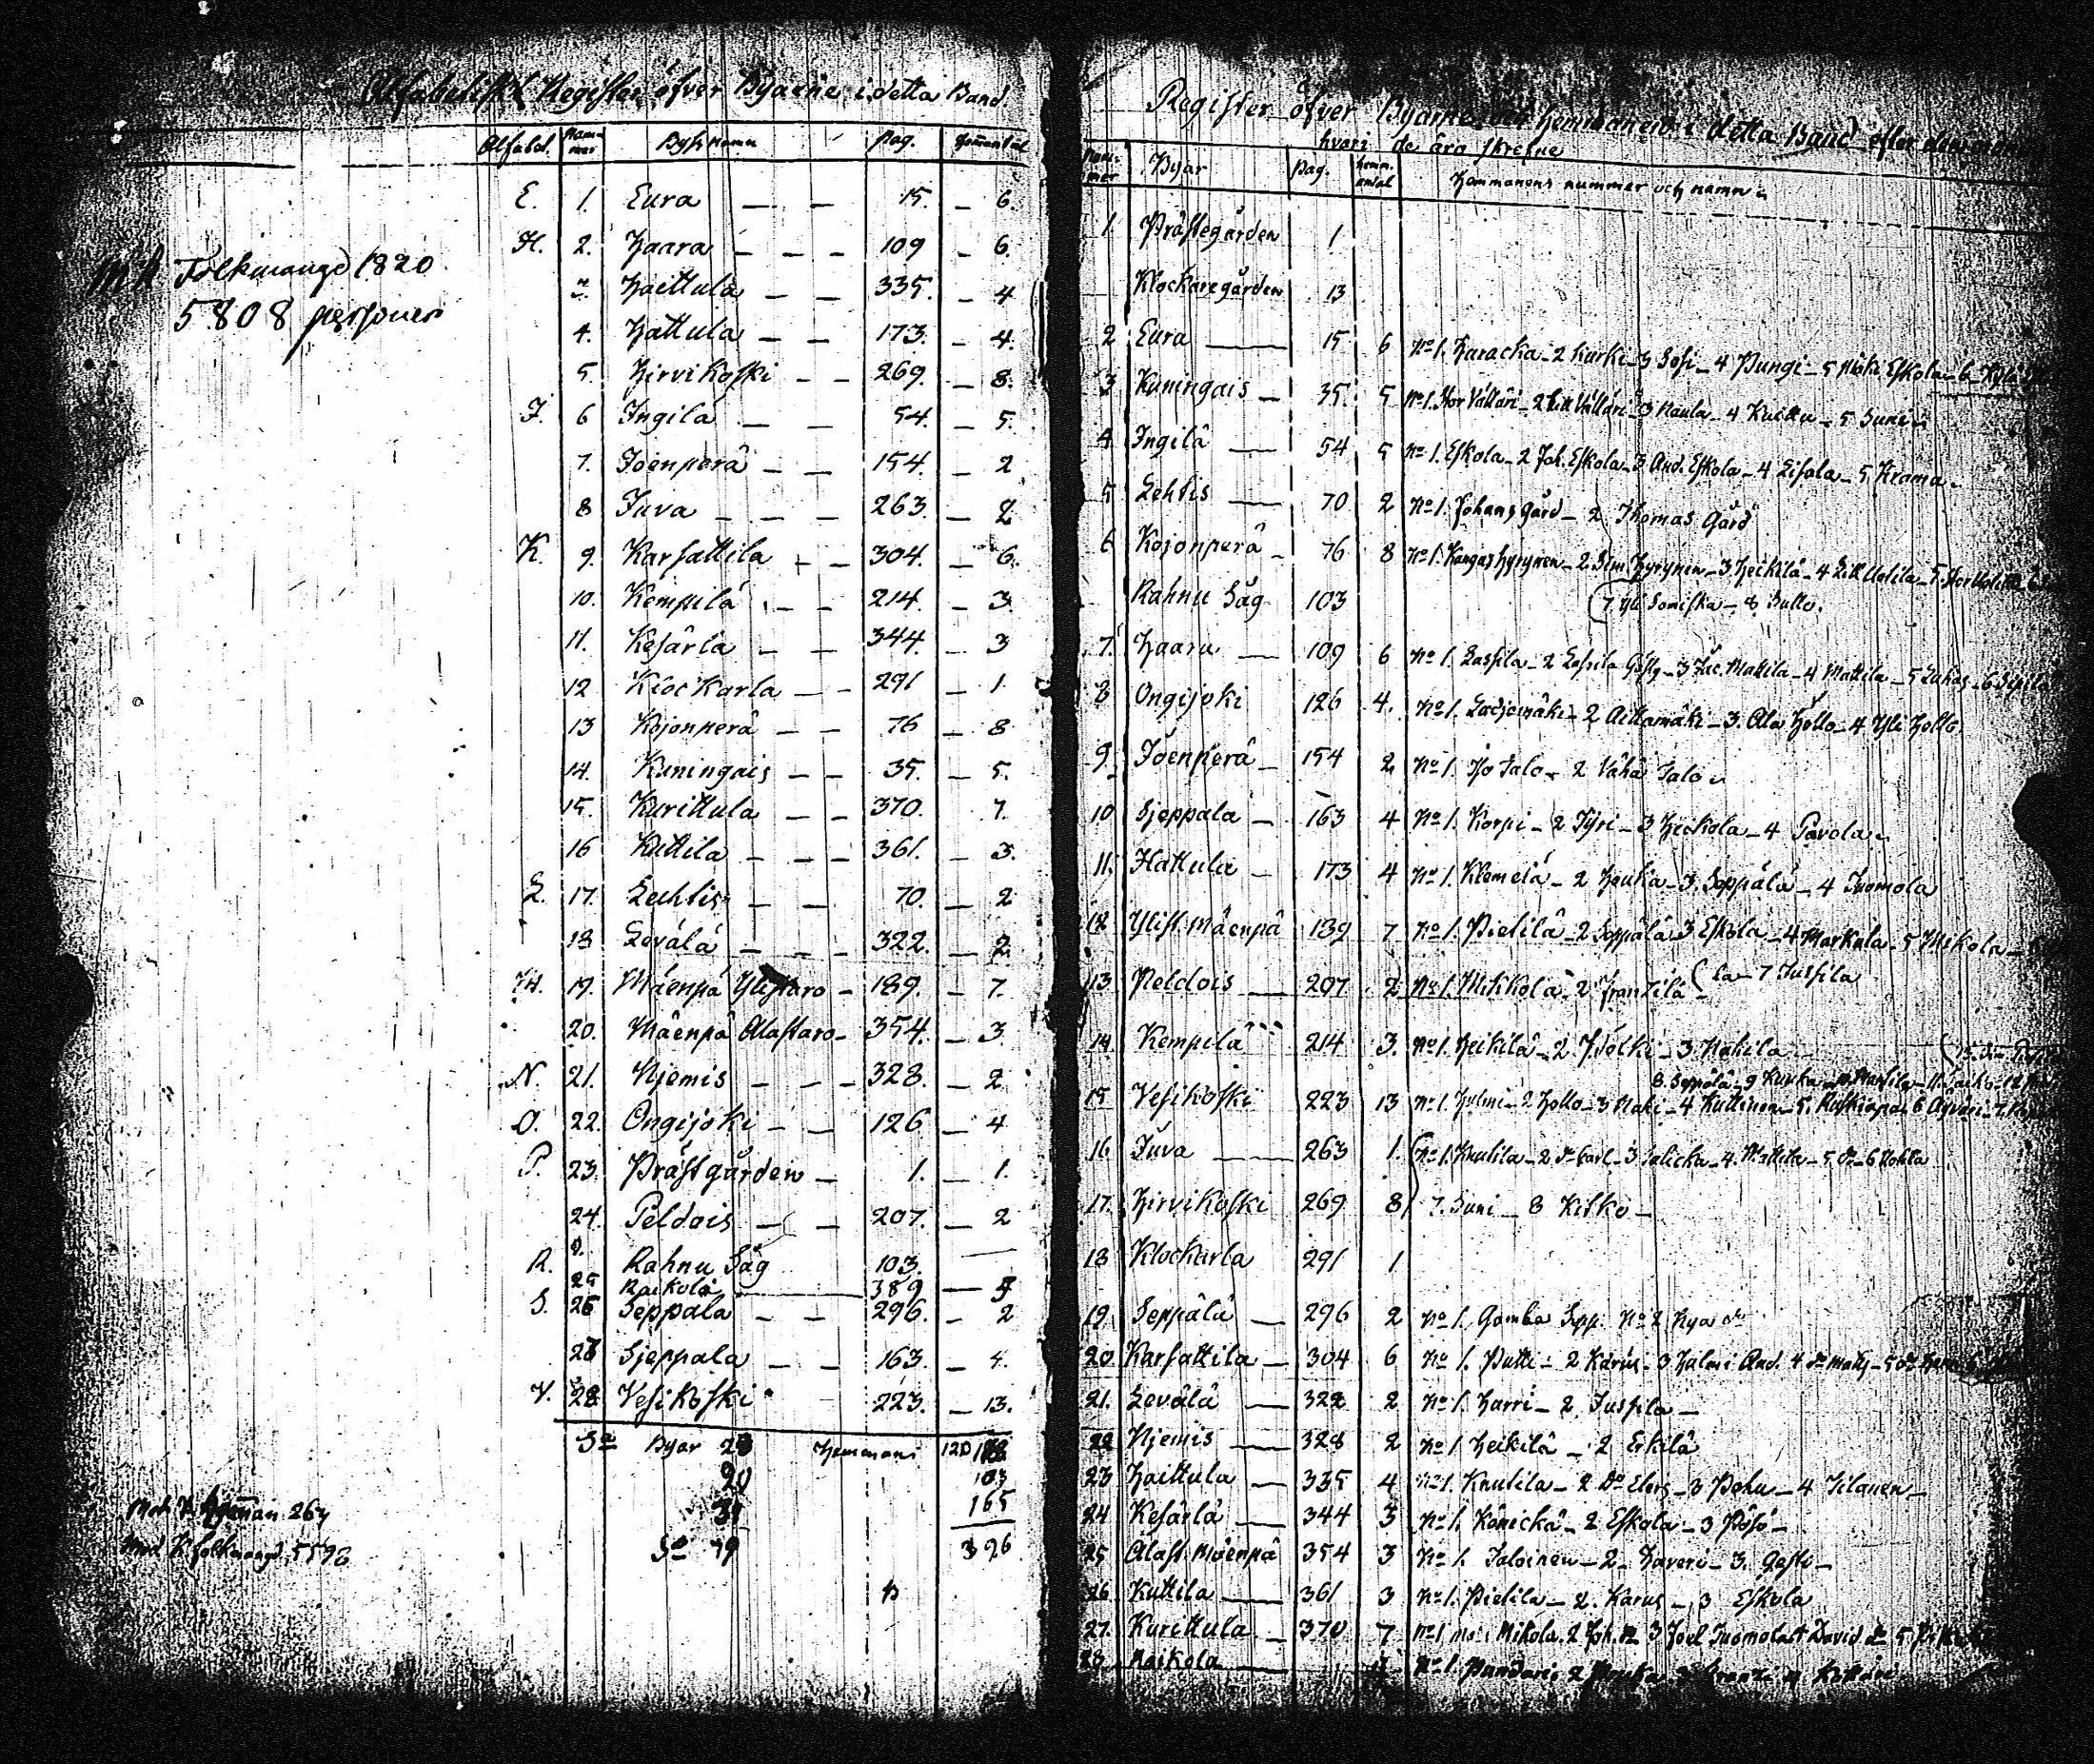 Alfabetiskt Register öfver Byarne i detta Band
Alfabet. Nummer Byss namn Pag. Hemantal
E. 1. Eura — — 15. — 6.
H. 2. Haara — — — 109 — 6.
3 Haittula — — 335. — 4
4. Hattula — — 173. — 4.
5. Hirvikoski — — 269. — 8.
I. 6 Ingilä — — 54. — 5.
7. Joenperä — — 154. — 2
8 Juva — — — 263. — 2
K. 9. Karsattila — — 304. — 6.
10. Kempilä — — 214. — 3
11. Kesärla — — 344. — 3
12 Klockarla — — 291 — 1.
13 Kojonperä — — 76 — 8
14. Kuningais — — 35. — 5.
15. Kurittula — — 370. 7.
16 Kuttila — — — 361. — 3.
L. 17. Lechtis — — 70. — 2
18 Levälä — — — 322. — 2
M. 19. Mäenpä Ylistaro — 189. — 7.
20. Mäenpä Alastaro — 354. — 3
N. 21. Njemis — — — 328. — 2
O. 22. Ongijoki — — 126 — 4
P. 23. Prästgården — 1. — 1.
24. Peldois — — 207. — 2
R. Rahnu Såg 103.
25 Raikola 389 —
S. 26 Seppälä — — 296. — 2
Sjeppala — — 163. — 4.
V. 28 Vesikoski 223. — 13.
Sa Byar Hemmani 120
103
165
Sa 79 326
Folkmängd 1820
5808 personer
Register öfver Byarne och Hemmanen i detta Band efter
hvari de äro skrefne
Nummer Byar Pag. hemmantal Hemmanens nummer och namn
1. Prästegården 1.
Klockaregården 13
2 Eura — 15 6 No 1. Haracka — 2 Kurki — 3 Sosi — 4 Pungi — 5 Mäki Eskola — 6
3 Kuningais — 35. 5 No 1. Stor Välläri — 2 Lill Välläri — 3 Naula — 4 Kuittu — 5 Suni
4 Ingilä — 54 5 No 1. Eskola — 2 Joh. Eskola — 3 And. Eskola — 4 Eisala — 5 Krama
5 Lehtis — 70 2 No 1. Johans gård — 2 Thomas Gård
6 Kojonperä — 76 8 No 1. Kangas Hyrynen — 2 Sim. Hyrynen — 3 Heikilä — 4 Lill Uotila — 5. Stor Uotila
Rahnu Såg 103 7 Yli Soniska — 8 Sullo.
7. Haara — 109 6 No 1. Laspila — 2 Laspila — 3 Jac. Mattila — 4 Mattila — 5 Luhas — 6
8 Ongijoki 126 4. No 1. — 2 Aittamäki — 3 Ala Hollo — 4 Yli Hollo
9. Joenperä — 154 2 No 1. Iso Talo — 2 Vähä Talo
10 Sjeppala — 163 4 No 1. Korpi — 2 Tyri — 3 Heckola — 4 Pavola
11. Hattula — 173 4 No 1. Klemelä — 2 Houka — 3 Seppälä — 4 Tuomola
12 Ylist. Mäenpä 189 7 No 1. Pietilä — 2 Seppälä 3 Eskola — 4 Markula — 5 Mikola —
la — 7 Juspila
13 Peldois — 207 2 No 1. Mikkola — 2 Frantilä
14. Kempilä 214 3. No 1. Heikilä — 2 — 3 Nahila
8. Seppälä — 9 Kurka
15 Vesikoski 223 13 No 1. Hulmi — 2 Hollo — 3 Naki — 4 Kuttinen — 5. — 6
16 Juva — 263 1. No 1. Knutila — 2 Do Carl — 3 — 4. Mattila — 5 Do — 6
17. Hirvikoski 269 8 7. Suni — 8 Kisko —
18 Klockarla 291 1
19 Seppälä — 296 2 No 1. Gamba Sepp. No 2 Nya do
20 Karsattila — 304 6 No 1. Putti — 2 Karus — 3 Halmi And. 4 do Matts — 5 do
21. Levälä — 322 2 No 1. Harri — 2. Juspila —
22 Njemis — 328 2 No 1. Heikilä — 2 Erkilä
23 Haittula — 335 4 No 1. Knutila — 2 Do — 3 Pohu — 4 Tilanen —
24 Kesärlä — 344 3 No 1. Könickä — 2 Eskola — 3 Pösö —
25 Alast. Mäenpä 354 3 No 1. Taloinen — 2 Haveri — 3. —
26 Kuttila — 361 3 No 1. Pietila — 2. Karus — 3 Eskola
27. Kurittula — 370 7 No 1 Mikola. 2 Joh. do 3 Joel Tuomola 4 David do 5
28. Raikola No 1.